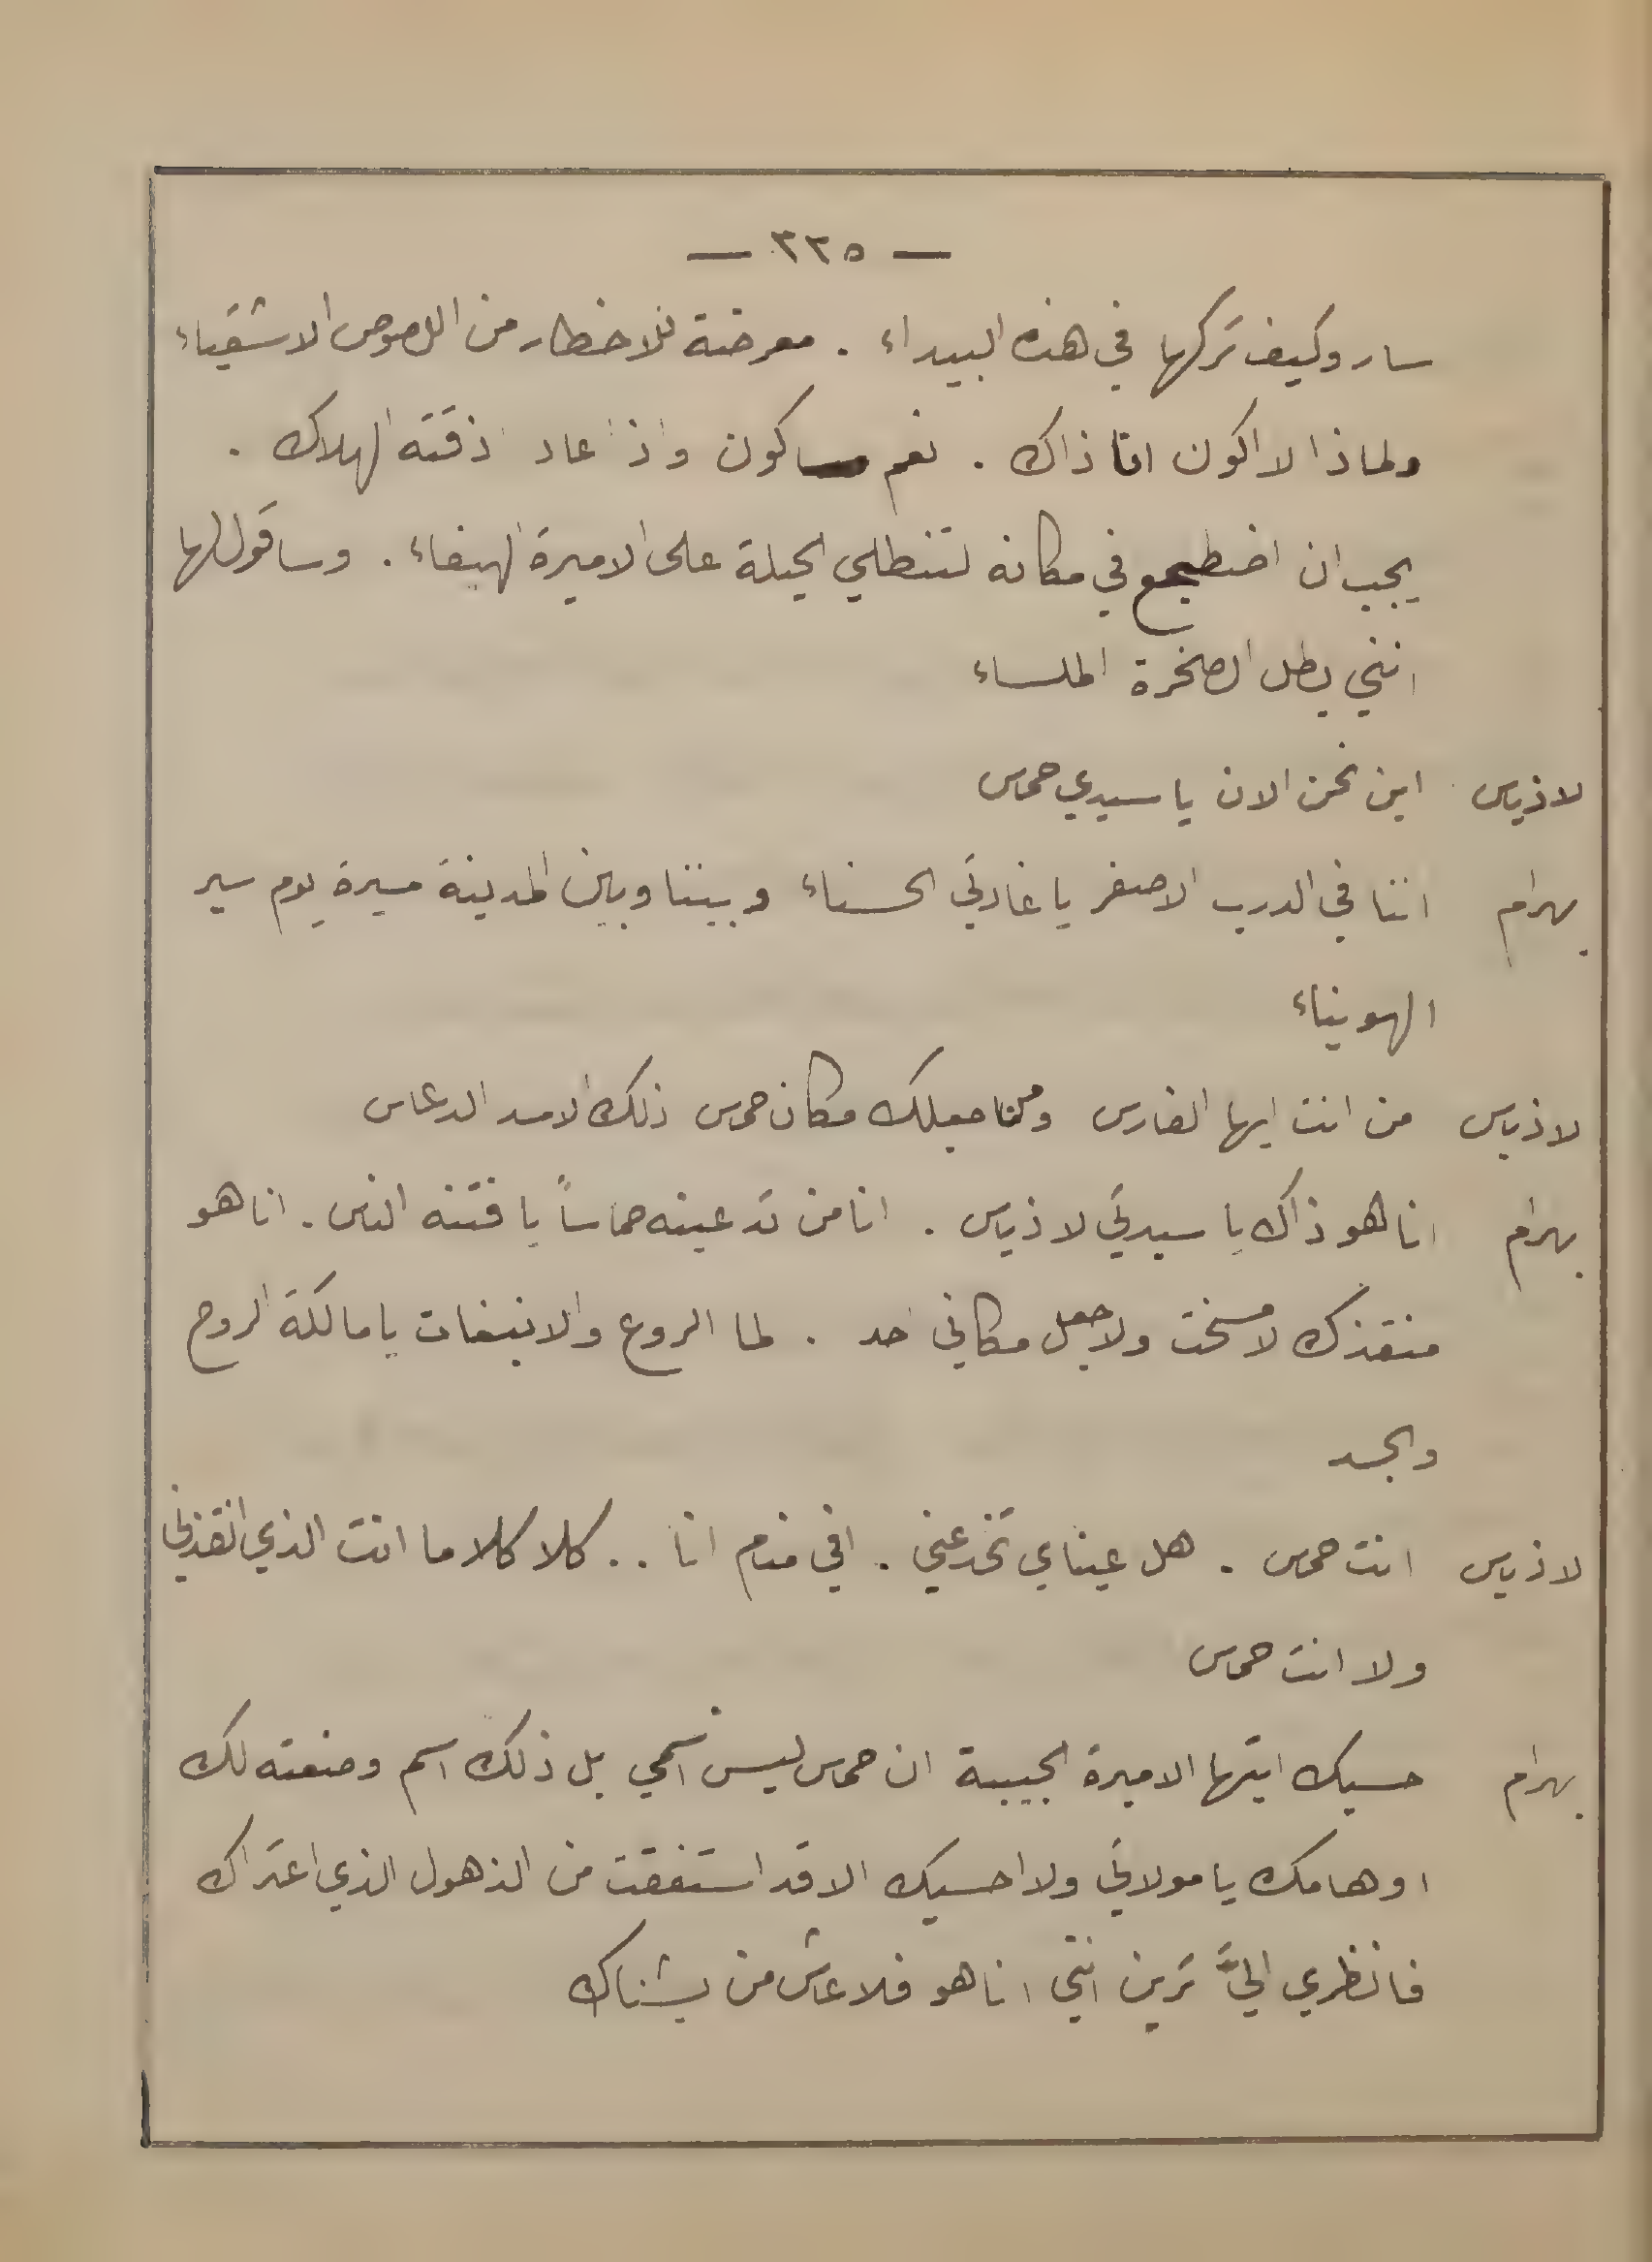 — ٣٣٥ —
سار وكيف تركها في هذه البيداء . معرضة للاخطار من اللصوص الاشقياء
ولماذا لا اكون انا ذاك . نعم ساكون واذا عاد اذقته الهلاك .
يجب ان اضطجع في مكانه لتنطلي الحيلة على الاميرة الهيفاء . وساقول لها
انني بطل الصخرة الملساء
لاذياس اين نحن الان يا سيدي حماس
بهرام اننا في الدرب الاصفر يا غادتي الحسناء وبيننا وبين المدينة مسيرة يوم سير
الهويناء
لاذياس من انت ايها الفارس ومن جعلك مكان حماس ذلك الاسد الدعاس
بهرام انا هو ذاك يا سيدتي لاذياس . انا من تدعينه حماساً يا فتنه الناس . انا هو
منقذك لا مسخت ولا جعل مكاني احد . لما الروع والانبغات يا مالكة الروح
والجسد
لاذياس انت حماس . هل عيناي تخدعني . افي منام انا .. كلا كلا ما انت الذي انقذني
ولا انت حماس
بهرام حسبك ايتها الاميرة الحبيبة ان حماس ليس اسمي بل ذلك اسم وضعته لك
اوهامك يا مولاتي ولا احسبك الا قد استفقت من الذهول الذي اعتراك
فانظري اليَّ ترين انني انا هو فلا عاش من يشناك